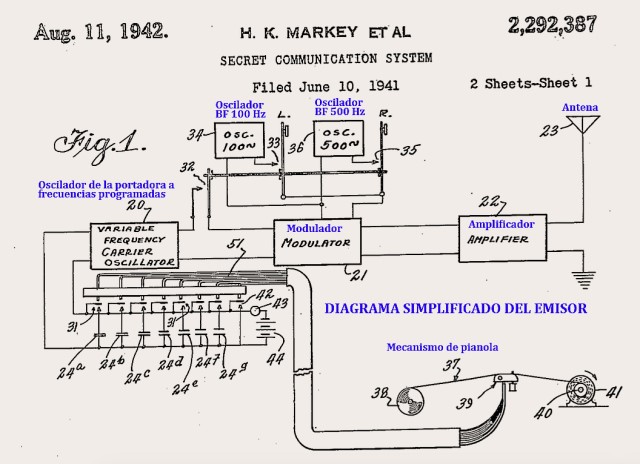 Aug. 11, 1942.
H. K. MARKEY ET AL
2,292,387
SECRET COMMUNICATION SYSTEM
Filed June 10, 1941
2 Sheets-Sheet 1
Fig. 1.
Oscilador
BF 100 Hz
Oscilador
BF 500 Hz
Antena
L.
R.
34
OSC.
100~
33
36
OSC.
500~
35
23
32
Oscilador de la portadora a
frecuencias programadas
20
VARIABLE
FREQUENCY
CARRIER
OSCILLATOR
Modulador
MODULATOR
21
22
Amplificador
AMPLIFIER
51
42
43
31
31
44
24a
24b
24c
24d
24e
24f
24g
DIAGRAMA SIMPLIFICADO DEL EMISOR
Mecanismo de pianola
37
38
39
40
41